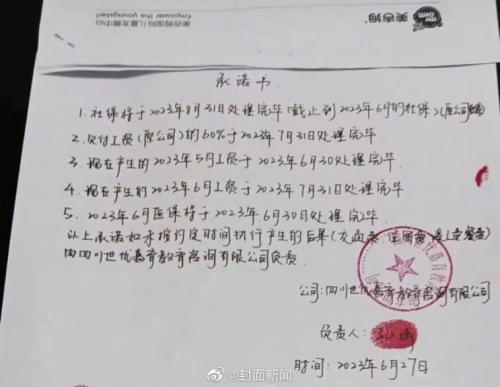 美吉姆国际儿童发展中心
Empower the youngster!
MY GYM
美吉姆
承诺书
1. 社保将于2023年8月31日处理完毕（截止到2023年6月的社保）（原公司
2. 欠付工资（原公司）的60%于2023年7月31日处理完毕
3. 现在产生的2023年5月工资于2023年6月30处理完毕
4. 现在产生的2023年6月工资于2023年7月31日处理完毕
5. 2023年6月医保将于2023年6月30日处理完毕
以上承诺如未按约定时间执行产生的后果
由四川世优嘉育教育咨询有限公司负责
公司：四川世优嘉育教育咨询有限公司
负责人：
时间：2023年6月27日
@封面新闻